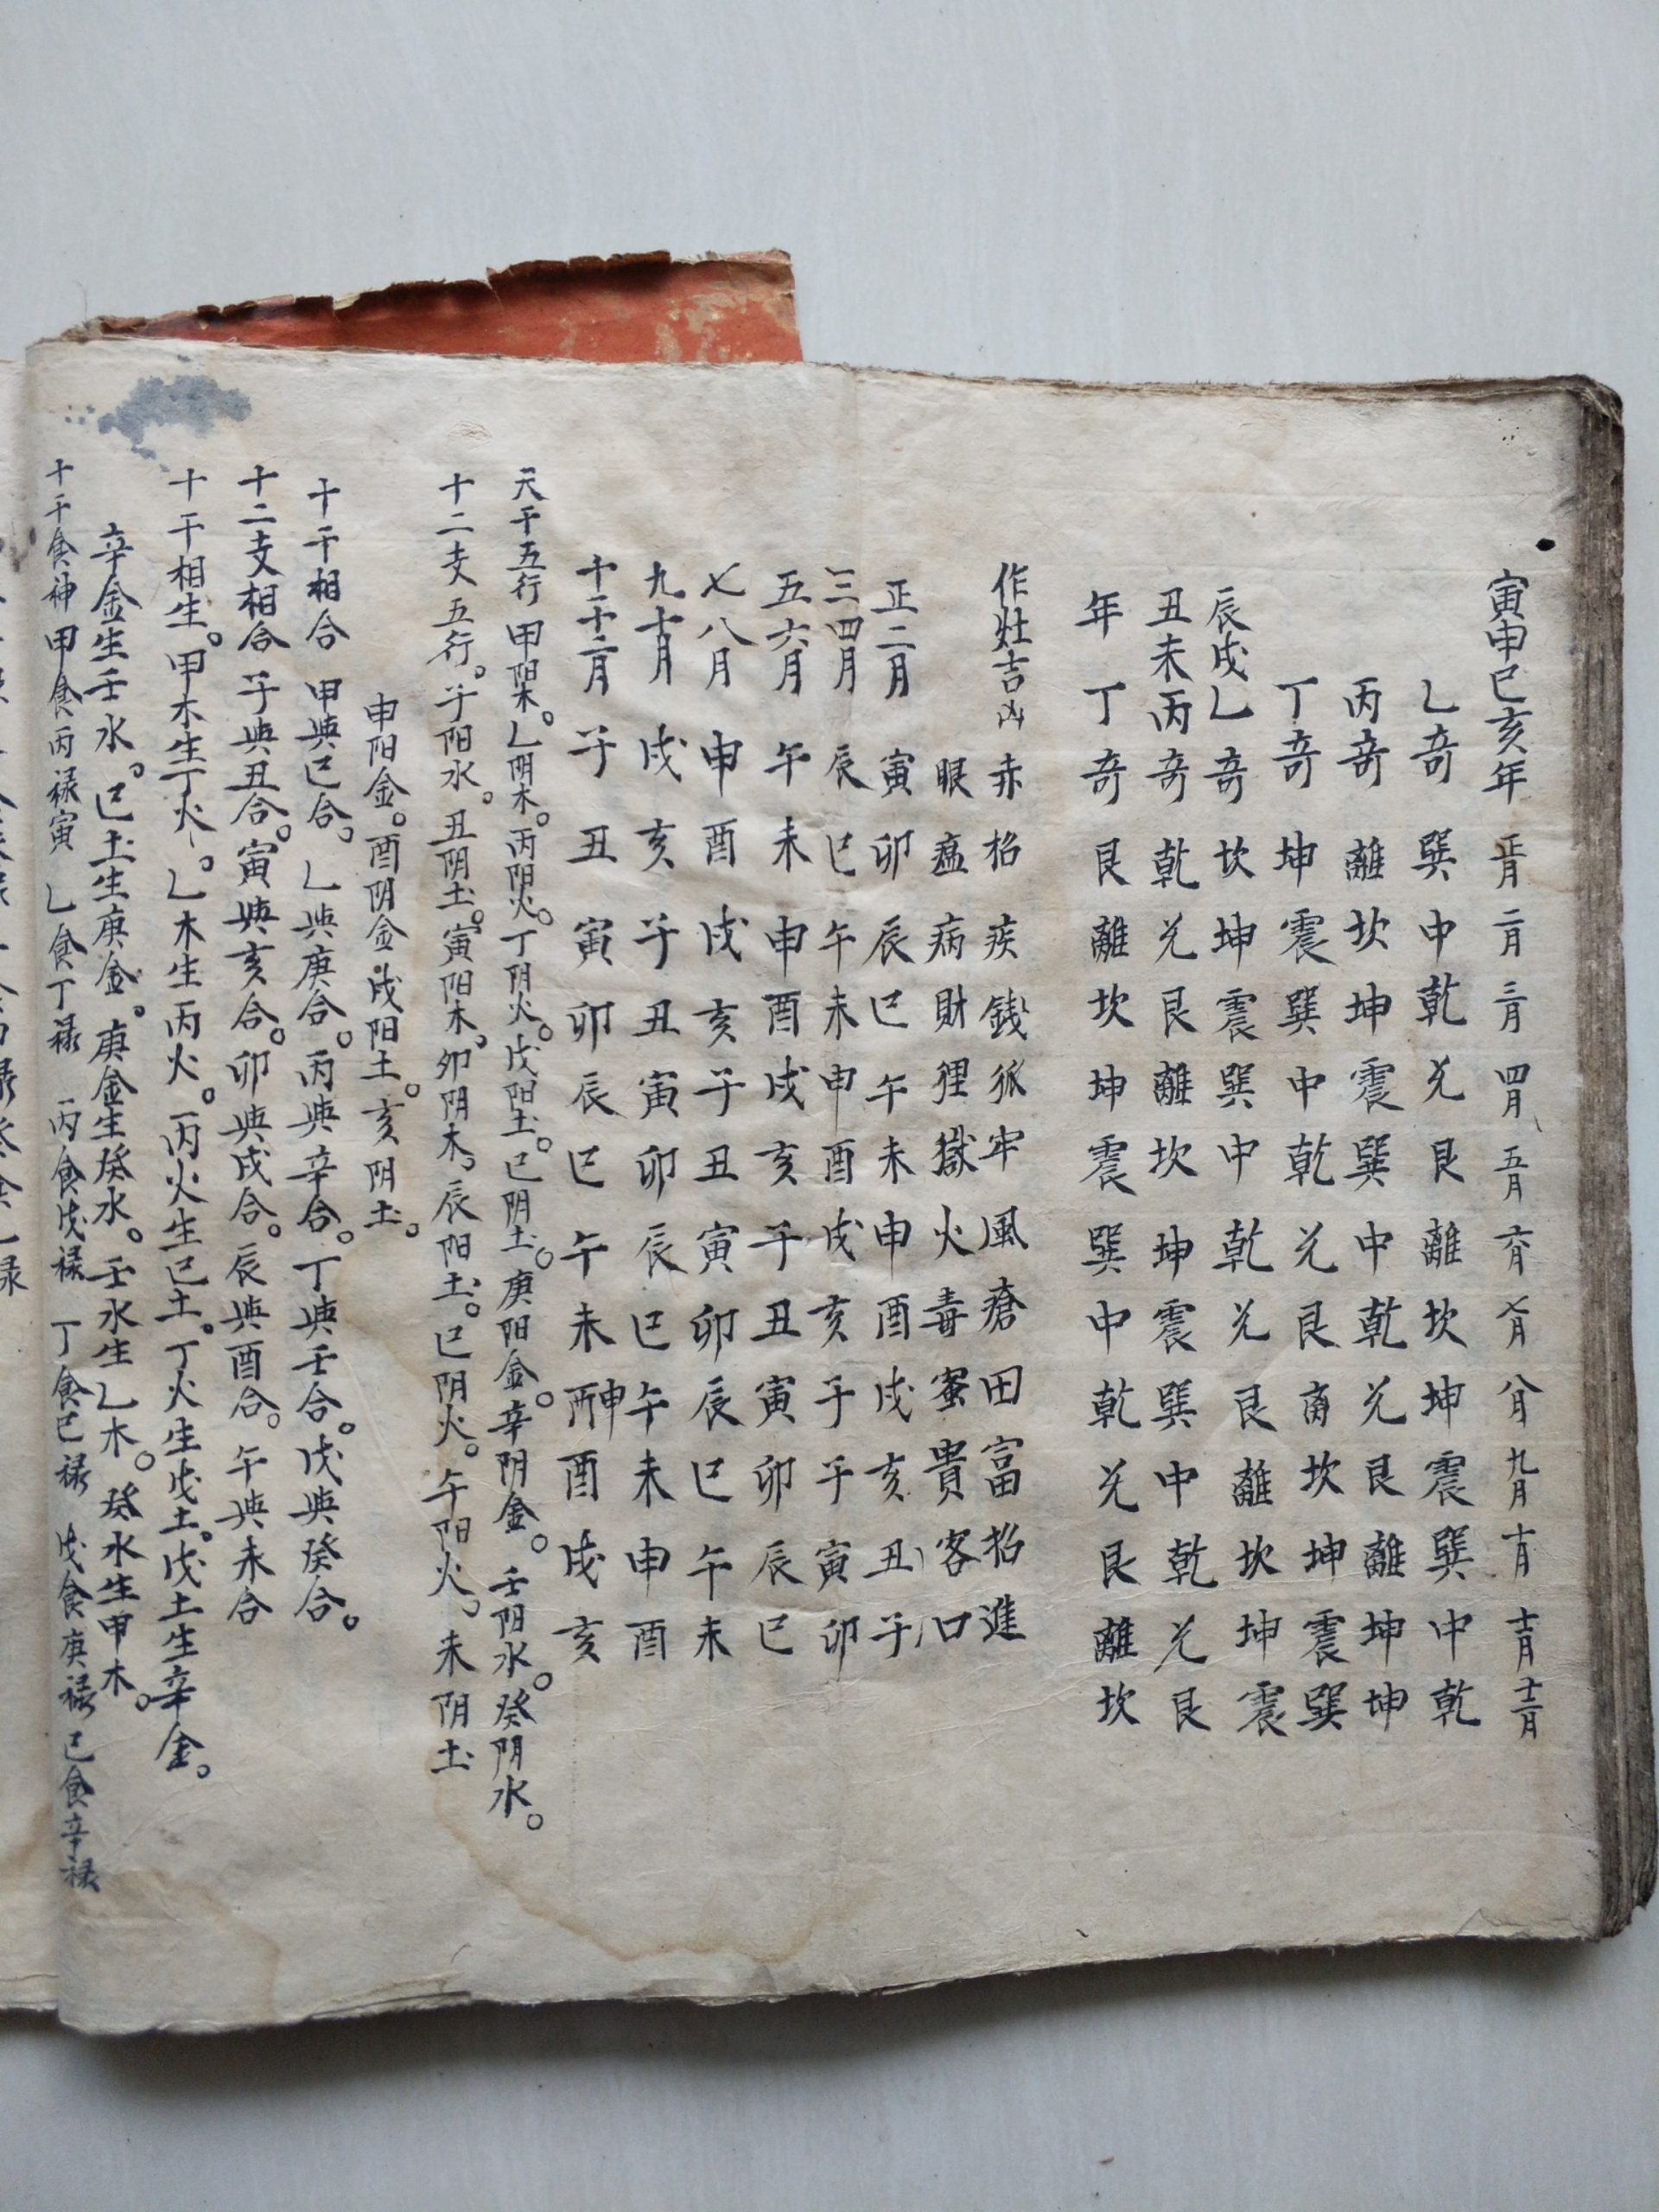 寅申巳亥年 正月 二月 三月 四月 五月 六月 七月 八月 九月 十月 十一月 十二月
乙奇 巽 中 乾 兑 艮 離 坎 坤 震 巽 中 乾
丙奇 離 坎 坤 震 巽 中 乾 兑 艮 離 坤 坤
丁奇 坤 震 巽 中 乾 兑 艮 离 坎 坤 震 巽
辰戌乙奇 坎 坤 震 巽 中 乾 兑 艮 離 坎 坤 震
丑未丙奇 乾 兑 艮 離 坎 坤 震 巽 中 乾 兑 艮
年 丁奇 艮 離 坎 坤 震 巽 中 乾 兑 艮 離 坎
作灶吉凶 赤 招 疾 錢 狐 牢 風 瘡 田 富 招 進
眼 瘟 病 財 狸 獄 火 毒 蚕 貴 客 口
正二月 寅 卯 辰 巳 午 未 申 酉 戌 亥 丑 子
三四月 辰 巳 午 未 申 酉 戌 亥 子 子 寅 卯
五六月 午 未 申 酉 戌 亥 子 丑 寅 卯 辰 巳
七八月 申 酉 戌 亥 子 丑 寅 卯 辰 巳 午 未
九十月 戌 亥 子 丑 寅 卯 辰 巳 午 未 申 酉
十一十二月 子 丑 寅 卯 辰 巳 午 未 申 酉 戌 亥
天干五行 甲阳木。乙阴木。丙阳火。丁阴火。戊阳土。己阴土。庚阳金。辛阴金。壬阳水。癸阴水。
十二支五行。子阳水。丑阴土。寅阳木。卯阴木。辰阳土。巳阴火。午阳火。未阴土
申阳金。酉阴金 戌阳土。亥阴土。
十干相合 甲與己合。乙與庚合。丙與辛合。丁與壬合。戊與癸合。
十二支相合 子與丑合。寅與亥合。卯與戌合。辰與酉合。午與未合
十干相生。甲木生丁火。乙木生丙火。丙火生己土。丁火生戊土。戊土生辛金。
辛金生壬水。己土生庚金。庚金生癸水。壬水生乙木。癸水生甲木。
十干食神 甲食丙禄寅 乙食丁禄 丙食戊禄 丁食己禄 戊食庚禄 己食辛禄